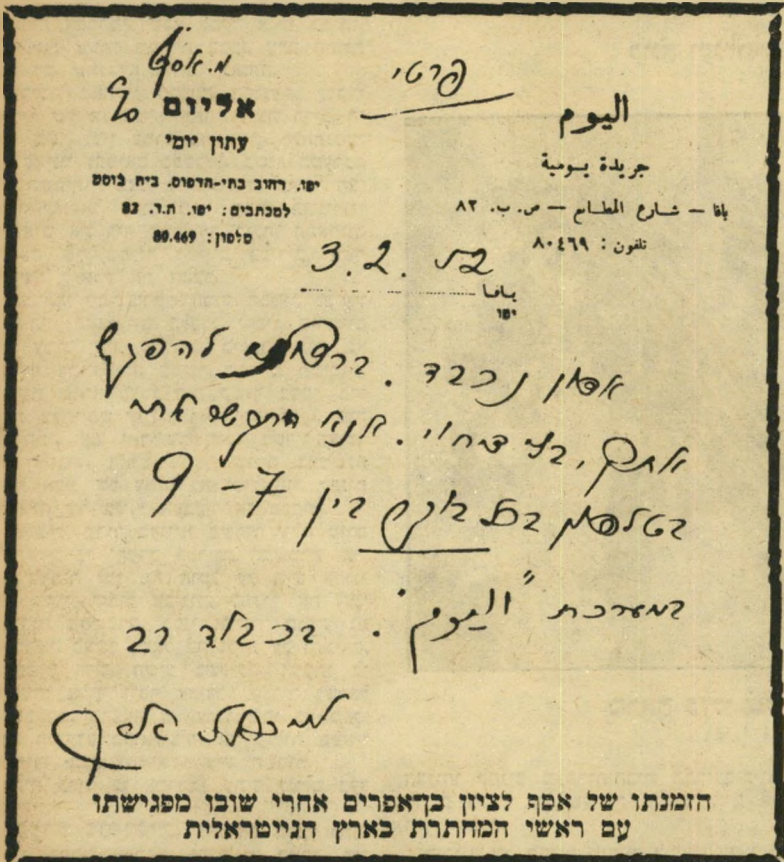 מ. אסף
פרטי
אליום
עתון יומי
יפו, רחוב בתי-הדפוס, בית בוסט
למכתבים: יפו, ת.ד. 82
טלפון: 80.469
اليوم
جريدة يومية
يافا — شارع المطابع — ص. ب. ٨٢
تلفون: ٨٠٤٦٩
3.2.52
يافا
יפו
אדון נכבד. ברצוני להפגש
אתך, בלי דיחוי. אנא התקשר אתי
בטלפון בכל בוקר בין 7–9
במערכת "اليوم". בכבוד רב
מיכאל אסף
הזמנתו של אסף לציון בן־אפרים אחרי שובו מפגישתו
עם ראשי המחתרת בארץ הנייטראלית